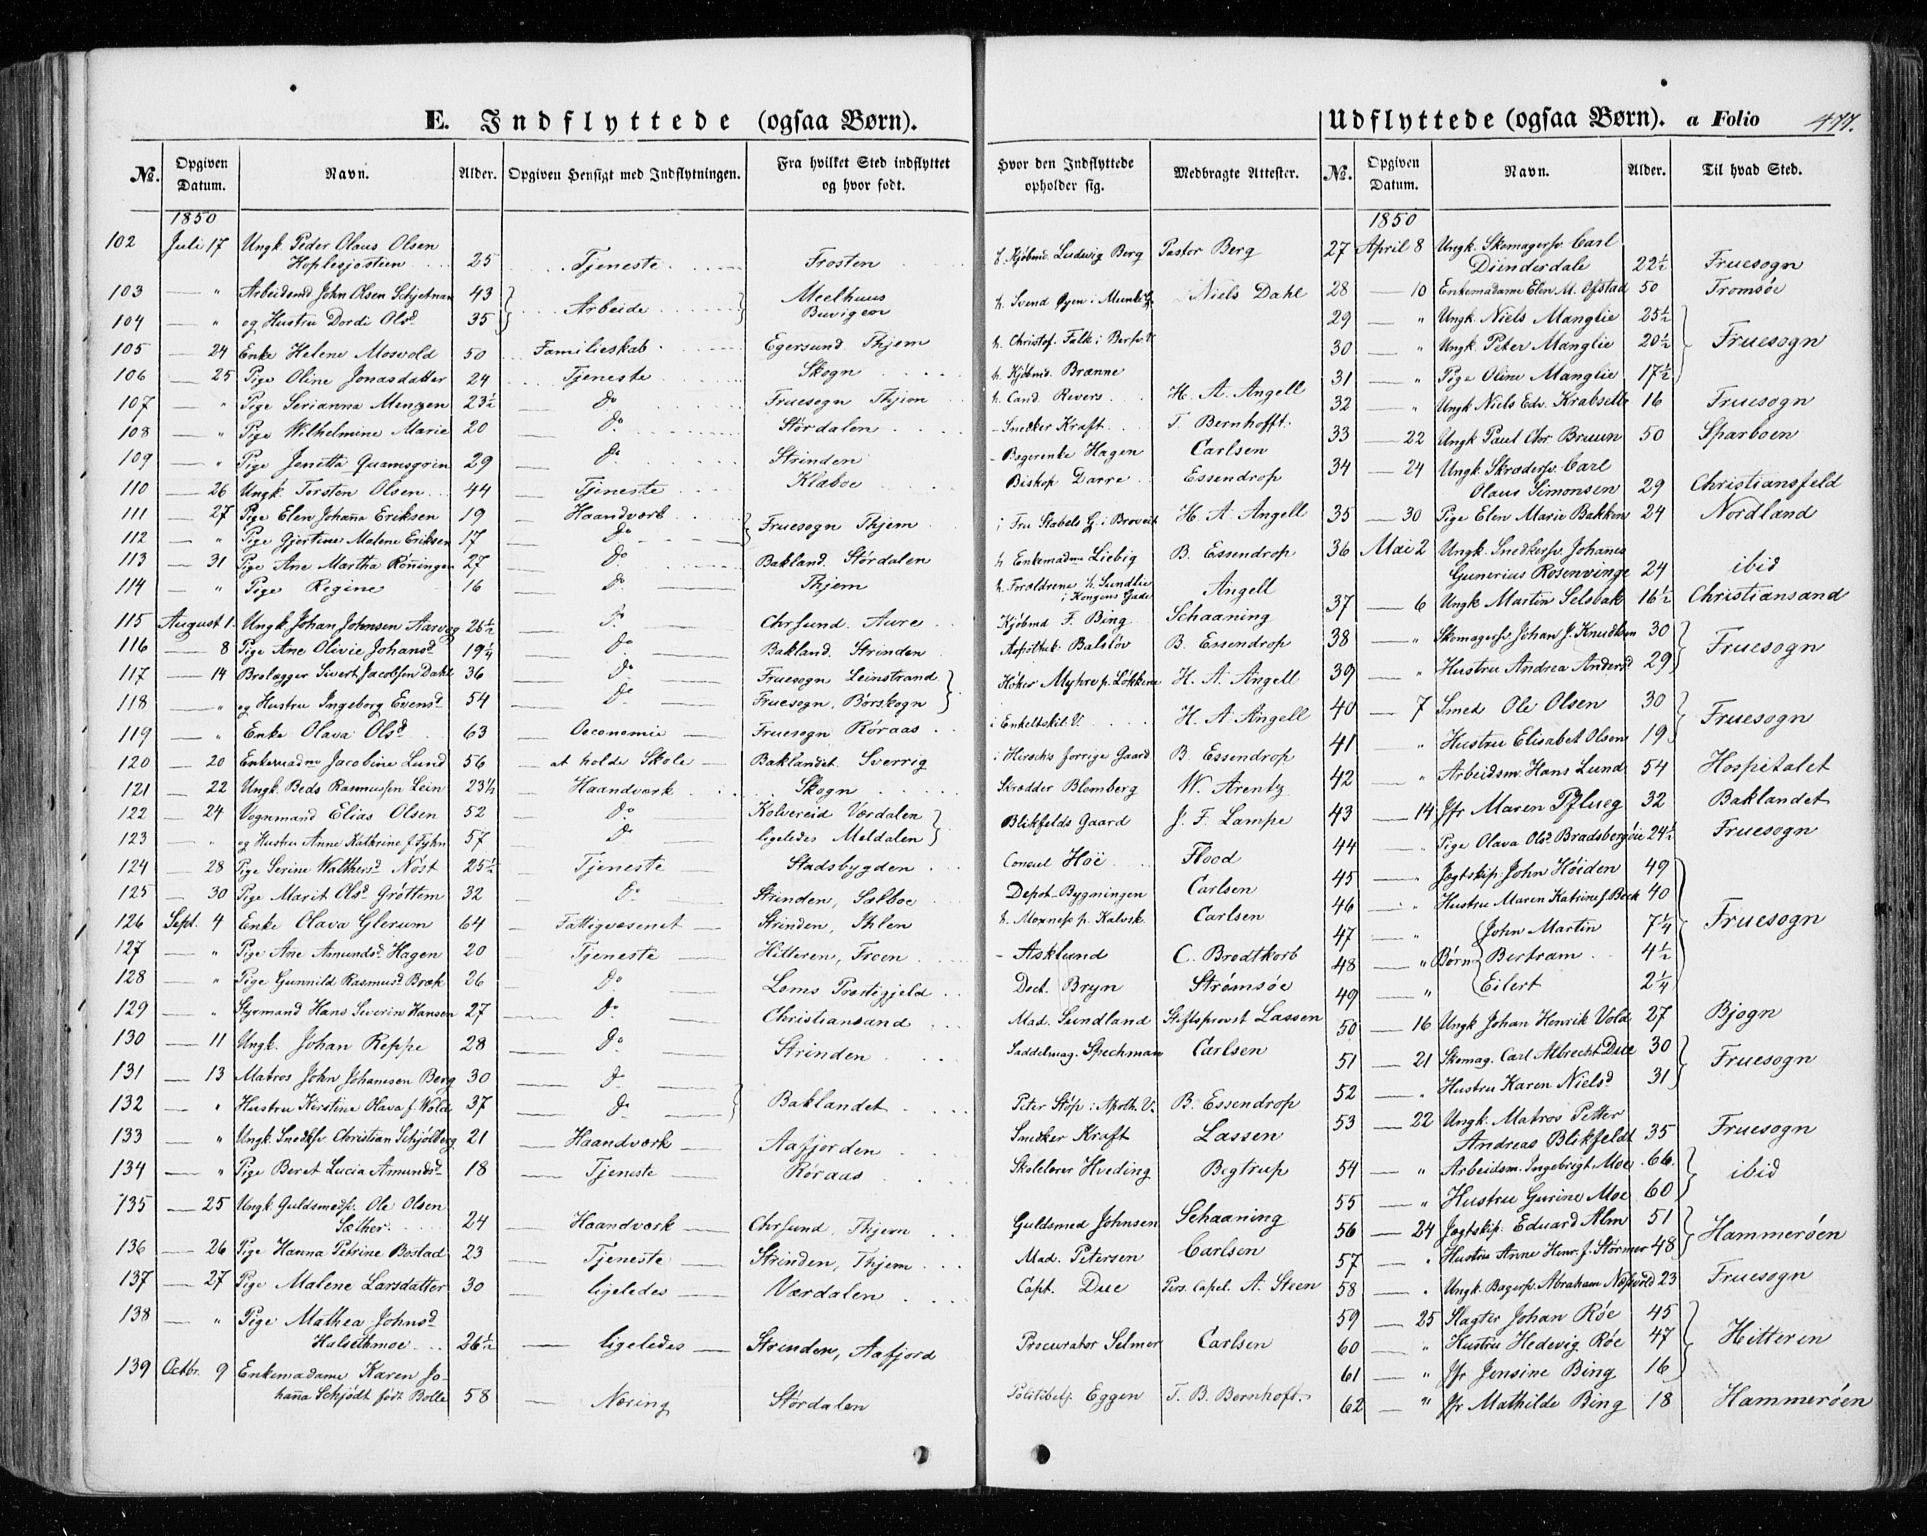 E. Indflyttede (ogsaa Børn).
No. Opgiven Datum. Navn. Alder. Opgiven Hensigt med Indflytningen. Fra hvilket Sted indflyttet og hvor født. Hvor den Indflyttede opholder sig. Medbragte Attester.
1850
102 Juli 17 Ungk. Peder Olaus Olsen
Hoplesjøstien 25 Tjeneste Frosten h. Kjøbmd. Ludvig Berg Pastor Berg
103 — " Arbeidsmd John Olsen Schjetnan 43 } Arbeide } Meelhuus h. Svend Øyen i Munkeg. Niels Dahl
104 — " og Hustru Dordi Olsd. 35 Buvigen
105 — 24 Enke Helene Mosvold 50 Familieskab Egersund. Thjem h. Christof. Falk i
106 — 25 Pige Oline Jonasdatter 24 Tjeneste Skogn h. Kjøbmd. Brænne
107 " Pige Serianna Menzen 23½ Do Fruesogn Thjem h. Cand. Revers H. A. Angell
108 — " Pige Wilhelmine Marie 20 — Do Størdalen – Snedker Kraft T. Bernhofft.
109 — " Pige Jenetta Quamsgrin 29 — Do Strinden – Bagerenke Hagen Carlsen
110 — 26 Ungk. Torsten Olsen 44 — Tjeneste Klæboe Biskop Darre Essendrop
111 — 27 Pige Elen Johanna Eriksen 19 — Haandværk } Fruesogn Thjem i Fru Stabels G. i H. A. Angell
112 " Pige Gjertine Malene Eriksen 17 — Do
113 — 31 Pige Ane Martha Rønningen 27 — Do Bakland. Størdalen h. Enkemadme Liebig B. Essendrop
114 — " Pige Regine 16 — Do Thjem h. Forældrene h. Sundlie i Kongens Gade Angell
115 August 1. Ungk. Johan Johnsen Aarvog 26½ — Do Chrsund. Aure Kjøbmd F. Bing Schaaning
116 — 8 Pige Ane Olivie Johansd. 19¼ — Do Bakland. Strinden Balsløv B. Essendrop
117 — 14 Brolægger Sivert Jacobsen Dahl 36 — Do Fruesogn Leinstrand } Høker Myhre p. Løkkene H. A. Angell
118 — " og Hustru Ingeborg Evensd. 54 — Do Fruesogn, Børskogn
119 " Enke Olava Olsd. 63 — Oeconomie — Fruesogn Røraas i Enkeltskil. V. H. A. Angell
120 — 20 Enkemadme Jacobine Lund 56 — at holde Skole — Baklandet. Sverrig i Hirschs forrige Gaard B. Essendrop
121 — 22 Ungk. Beds Rasmussen Lein 23½ — Haandværk Skogn Skrædder Blomberg W. Arentz
122 — 24 Vognmand Elias Olsen 52 — Do Kolvereid Værdalen } Blikfelds Gaard J. F. Lampe
123 " og Hustru Anne Kathrine f. Fyhn 57 — Do ligeledes Meldalen
124 — 28 Pige Serine Walthersd. Nøst 25½ Tjeneste — Stadsbygden Consul Høe Flood
125 — 30 Pige Marit Olsd. Grøttem 32 — Do Strinden, Sælboe Depot. Bygningen Carlsen
126 Sept. 4 Enke Olava Glerum 64 — Fattigvæsenet — Strinden, Ihlen h. Moxness p. Kalvsk. Carlsen
127 — " Pige Ane Amundsd. Hagen 20 Tjeneste — Hitteren, Froen – Asklund C. Brodtkorb
128 " Pige Gunnild Rasmusd. Bræk 26 — Do Loms Præstigjeld Doct. Bryn Strømsøe
129 " Styrmand Hans Severin Hansen 27 — Do Christiansand Mad. Sundland Stiftsprovst Lassen
130 — 11 Ungk. Johan Reppe 28 — Do Strinden Saddelmag. Spechman Carlsen
131 — 13 Matros John Johannesen Berg 30 — Do
132 — " Hustru Kirstine Olava f. Wold 37 — Do } Baklandet Peter Støp i Apoth. V. B. Essendrop
133 — " Ungk. Snedksv Christian Schjølberg 21 — Haandværk — Aafjorden Snedker Kraft Lassen
134 — " Pige Beret Lucia Amundsd. 18 — Tjeneste — Røraas Skolelærer Hveding Begtrup
135 — 25 Ungk. Guldsmedsv. Ole Olsen
Sæther 24 — Haandværk — Chrsund, Thjem Guldsmed Johnsen Schaaning
136 — 26 Pige Hanna Petrine Bostad 23 — Tjeneste — Strinden, Thjem Mad. Petersen Carlsen
137 — 27 Pige Malene Larsdatter 30 — ligeledes — Værdalen Capt. Due Pers. Capel. A. Steen
138 — " Pige Mathea Johnsd.
Halsethmoe 26½ — ligeledes — Strinden, Aafjord Procurator Selmer Carlsen
139 Octbr. 9 Enkemadame Karen Jo-
hanna Schjødt født Bolle 58 — Næring Størdalen Politibetj. Eggen T. B. Bernhoft.
Udflyttede (ogsaa Børn). a Folio 477.
No. Opgiven Datum. Navn. Alder. Til hvad Sted.
1850
27 April 8 Ungk. Skomagersv. Carl
Dienderdale 22½ Fruesogn
28 — 10 Enkemadame Elen M. Ofstad 50 Tromsøe
29 — " Ungk. Niels Manglie 25½
30 — " Ungk. Peter Manglie 20½ } Fruesogn
31 " Pige Oline Manglie 17½
32 — " Ungk Niels Edv. Krabseth 16 Fruesogn
33 — 22 Ungk Paul Chr. Bruun 50 Sparboen
34 — 24 Ungk. Skrædersv. Carl
Olaus Simonsen 29 Christiansfeld
35 — 30 Pige Elen Marie Bakken 24 Nordland
36 Mai 2 Ungk. Snedkersv. Johanes
Gunerius Rosenvinge 24 ibid
37 — 6 Ungk Martin Selsbak 16½ Christiansand
38 — " Skomagersv. Johan J. Knudsen 30 } Fruesogn
39 — " Hustru Andrea Andersd 29
40 — 7 Smed Ole Olsen 30 } Fruesogn
41 " Hustru Elisabet Olsen 19
42 — " Arbeidsm. Hans Lund 54 Hospitalet
43 — 14 Jfr Maren Pflueg 32 Baklandet
44 — " Pige Olava Olsd. Bradsbergøie 24½ Fruesogn
45 — " Jægtskip. John Høiden 49
46 — " Hustru Maren Katrine f. Beck 40
47 — " John Martin 7¼ } Fruesogn
48 — " Børn { Bertram 4½
49 — " Eilert 2¼
50 — 16 Ungk Johan Henrik Vold 27 Bjogn
51 — 21 Skomag. Carl Albrecht Due 30 } Fruesogn
52 — " Hustru Karen Nielsd 31
53 — 22 Ungk. Matros Petter
Andreas Blikfeldt 35 Fruesogn
54 — " Arbeidsm. Ingebrigt Moe 66. } ibid
55 — " Hustru Gurine Moe 60
56 — 24 Jægtskip. Eduard Alm 51 } Hammerøen
57 — " Hustru Anne Henr. f. Stormer 48
58 — " Ungk. Bagersv. Abraham Næsvold 23 Fruesogn
59 — 25 Slagter Johan Røe 45
60 — " Hustru Hedevig Røe 47 } Hitteren
61 — " Jfr Jensine Bing 16
62 — " Jfr Mathilde Bing 18 Hammerøen